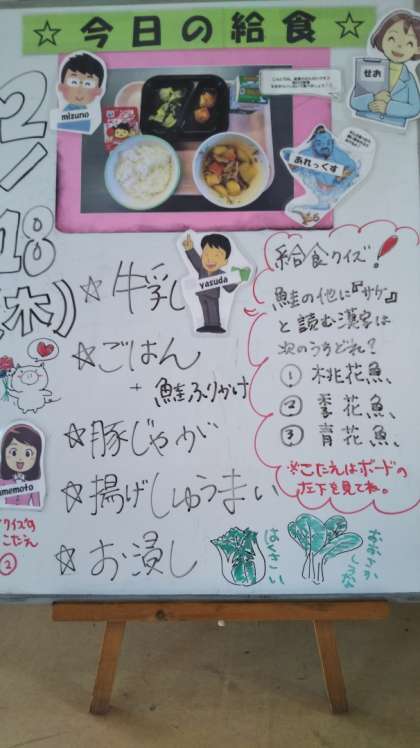 ☆今日の給食☆
せお
mizuno
あれっくす
2/18(木)
yasuda
☆牛乳
☆ごはん
+鮭ふりかけ
☆豚じゃが
☆揚げしゅうまい
☆お浸し
給食クイズ!
鮭の他に『サケ』
と読む漢字は
次のうちどれ?
① 桃花魚
② 季花魚
③ 青花魚
※こたえはボードの
左下を見てね。
memoto
クイズの
こたえ
②
はくさい
おおさか
しろな